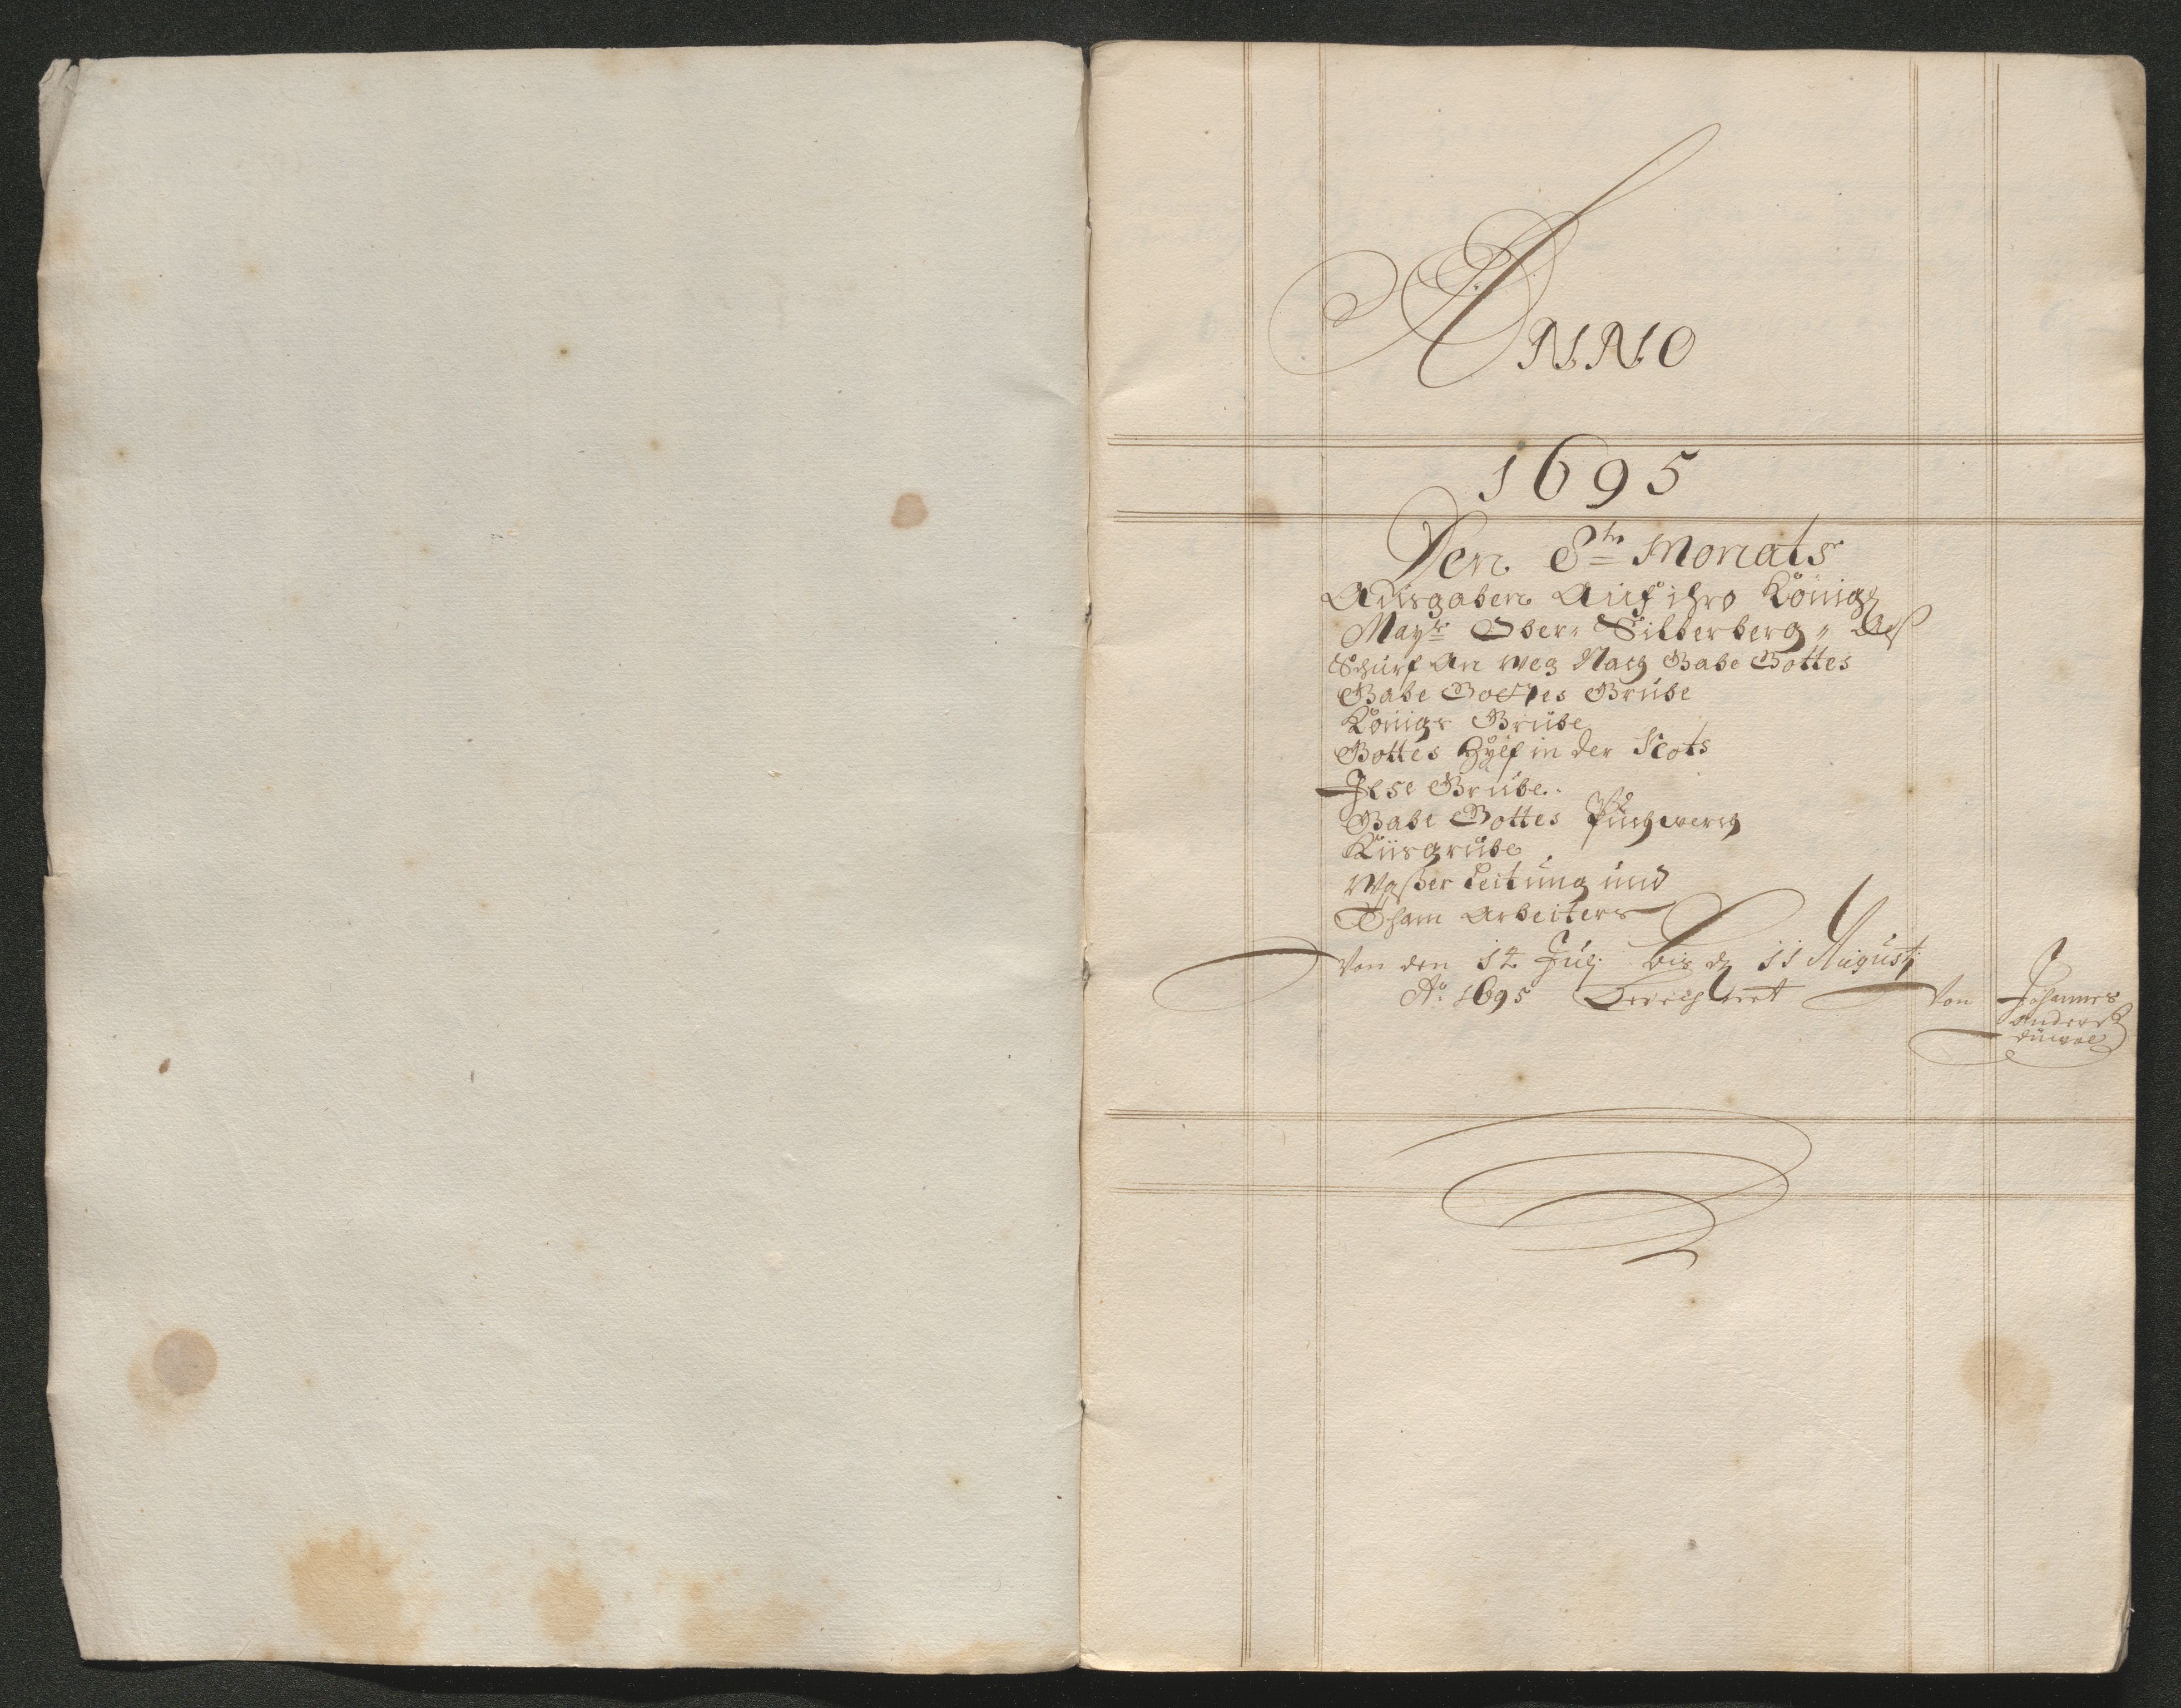 ANNO
1695
Den 8tn Monats
Ausgaben Auf ihro König
Maytt Ober Silberberg als
Schürf An weg Nach Gabe Gottes
Gabe Gottes Grube
Königs Grube
Gottes Hylf in der Scots
Ilse Grube
Gabe Gottes Puchwerch
Kiisgrube
Waßer Leitung und
Tham Arbeiters
Von den 14 Julj bis d 11 August
Ao 1695 Berechnet Von Johannes
Anders